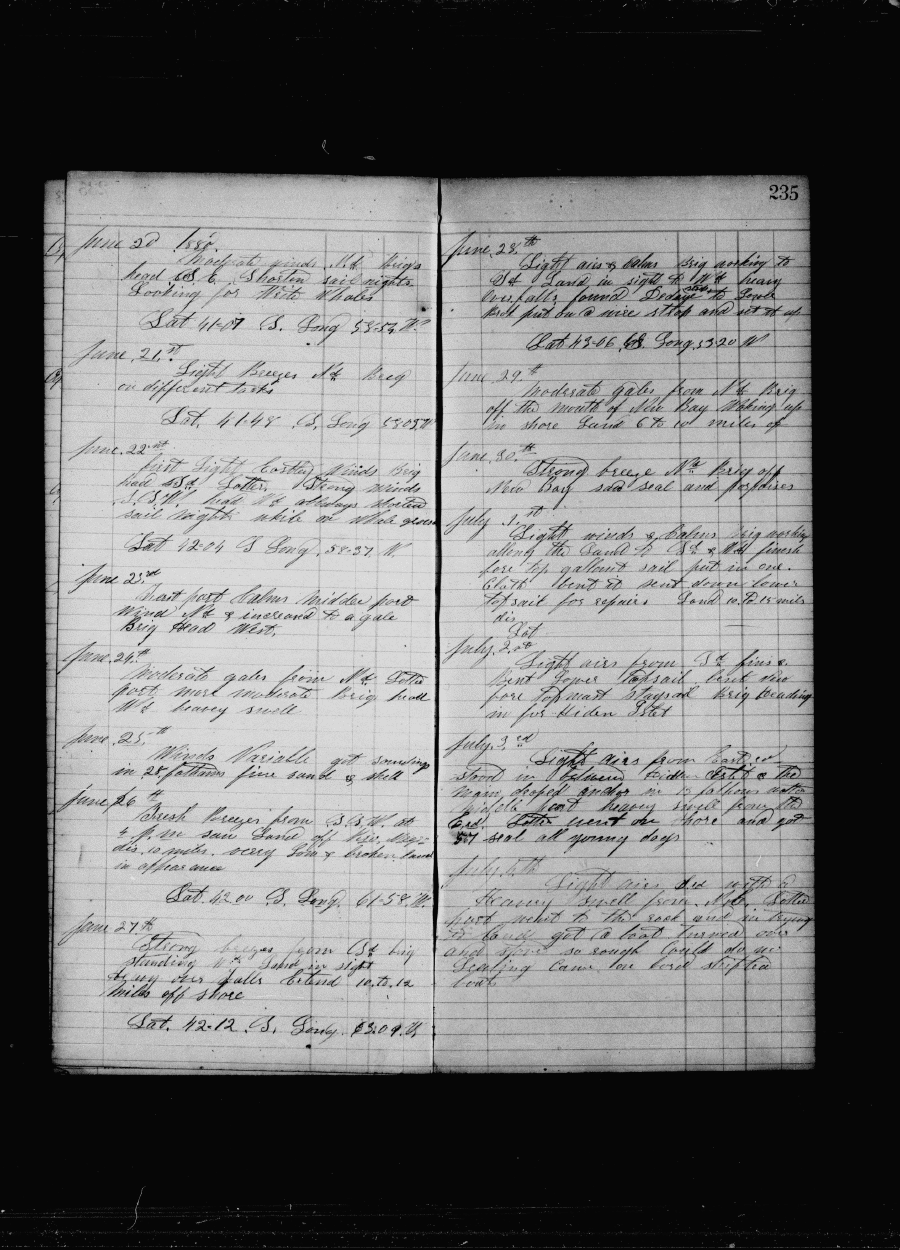 235
June 20 1880.
Moderate winds Nd Brigs
head S.E. Shorten sail nights
Looking for Right Whales
Lat 41-07 S. Long 53-53 W.
June 21.st
Light Breezes Nd Brig
on different tacks
Lat. 41-48 S, Long 58 03 W
June 22nd
first Light Easterly Winds Brig
head Sd Latter Strong winds
S.S.W. head Wd allways shorten
sail night while on Whale ground
Lat 42-04 S Long. 58-37 W.
June 23.rd
First part Calms Midder part
Wind Nd & increased to a gale
Brig Head West.
June 24.th
Moderate gales from Nd Latter
part more moderate Brig head
Wd heavey swell
June 25.th
Winds Variable got soundings
in 28 fathoms fine sand & shell
June 26th
Fresh Breezes from S.S.W. at
4 P.m saw Land off
dis. 10 miles. very Low & broken Land
in appearance
Lat. 42 00 S. Long. 61-58. W.
June 27.th
Strong breezes from Sd brig
standing Wd Land in sight
heavy over falls Extend 10. to. 12
miles off shore
Lat. 42-12 S. Long. 63.09. W
June 28.th
Light airs & Calms Brig working to
Sd Land in sight to Wd heavy
Overfalls found to Lower
put on a wire strop and set it up
Lat 43-06 S. Long. 63-20 W
June 29.th
Moderate gales from Nd Brig
off the mouth of New Bay Working up
in shore Land 6 to 10 miles of
June 30.th
Strong breeze Nd Brig off
New Bay saw seal and porpoises
July 1.st
Light winds & Calms brig working
allong the Land to Sd & Wd finish
fore top galount sail put in one.
Cloth bent it sent down lower
topsail for repairs Land 10. to 15 miles
dis
Lat
July 2.nd
Light airs from Sd finis &
Bent Lower Topsail bent new
fore Topmast Staysail Brig beading
in for Hiden Islet
July 3.rd
Light airs from East.rd
stood in between Hiden Islet & the
main droped anchor in 13 fathoms water
Middle part heavey swell from the
Erd. Latter went on shore and got
seal all young dogs
July 4th
Light airs with a
Heavey swell from Nd. Latter
part went to the rook and in trying
to land got a boat turned over
and so rough could do no
Sealing Came on bord
boat